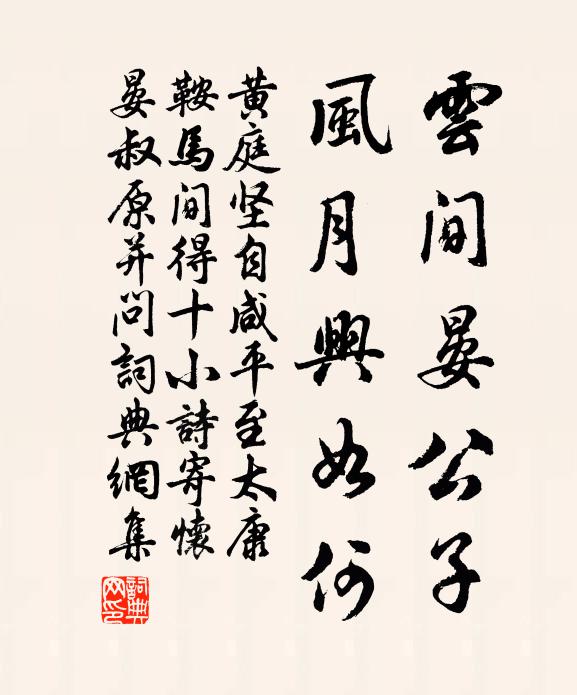 雲間晏公子
風月興如何
黄庭坚自咸平至太康
鞍馬間得十小詩寄懷
晏叔原并問詞典網集
詞典網印